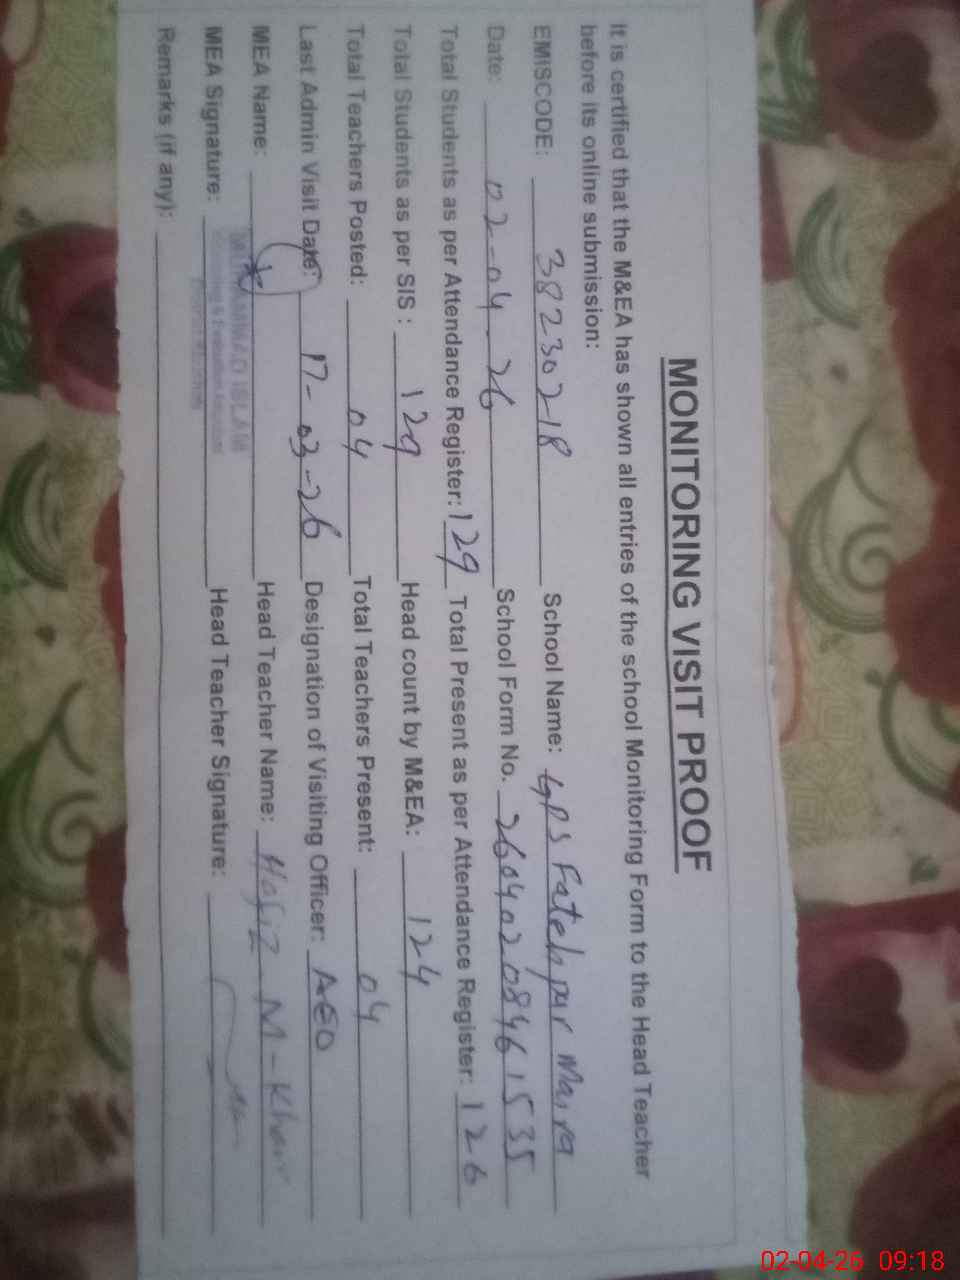 MONITORING VISIT PROOF
It is certified that the M&EA has shown all entries of the school Monitoring Form to the Head Teacher
before its online submission:
EMISCODE: 38230218 School Name: GPS Fatehpur Maira
Date: 02-04-26 School Form No. 26040208461535
Total Students as per Attendance Register: 129 Total Present as per Attendance Register: 126
Total Students as per SIS : 129 Head count by M&EA: 124
Total Teachers Posted: 04 Total Teachers Present: 04
Last Admin Visit Date: 17-03-26 Designation of Visiting Officer: AEO
MEA Name: MUHAMMAD ISLAM Head Teacher Name: Hafiz M-Khan
MEA Signature: Head Teacher Signature:
Remarks (if any):
02-04-26 09:18